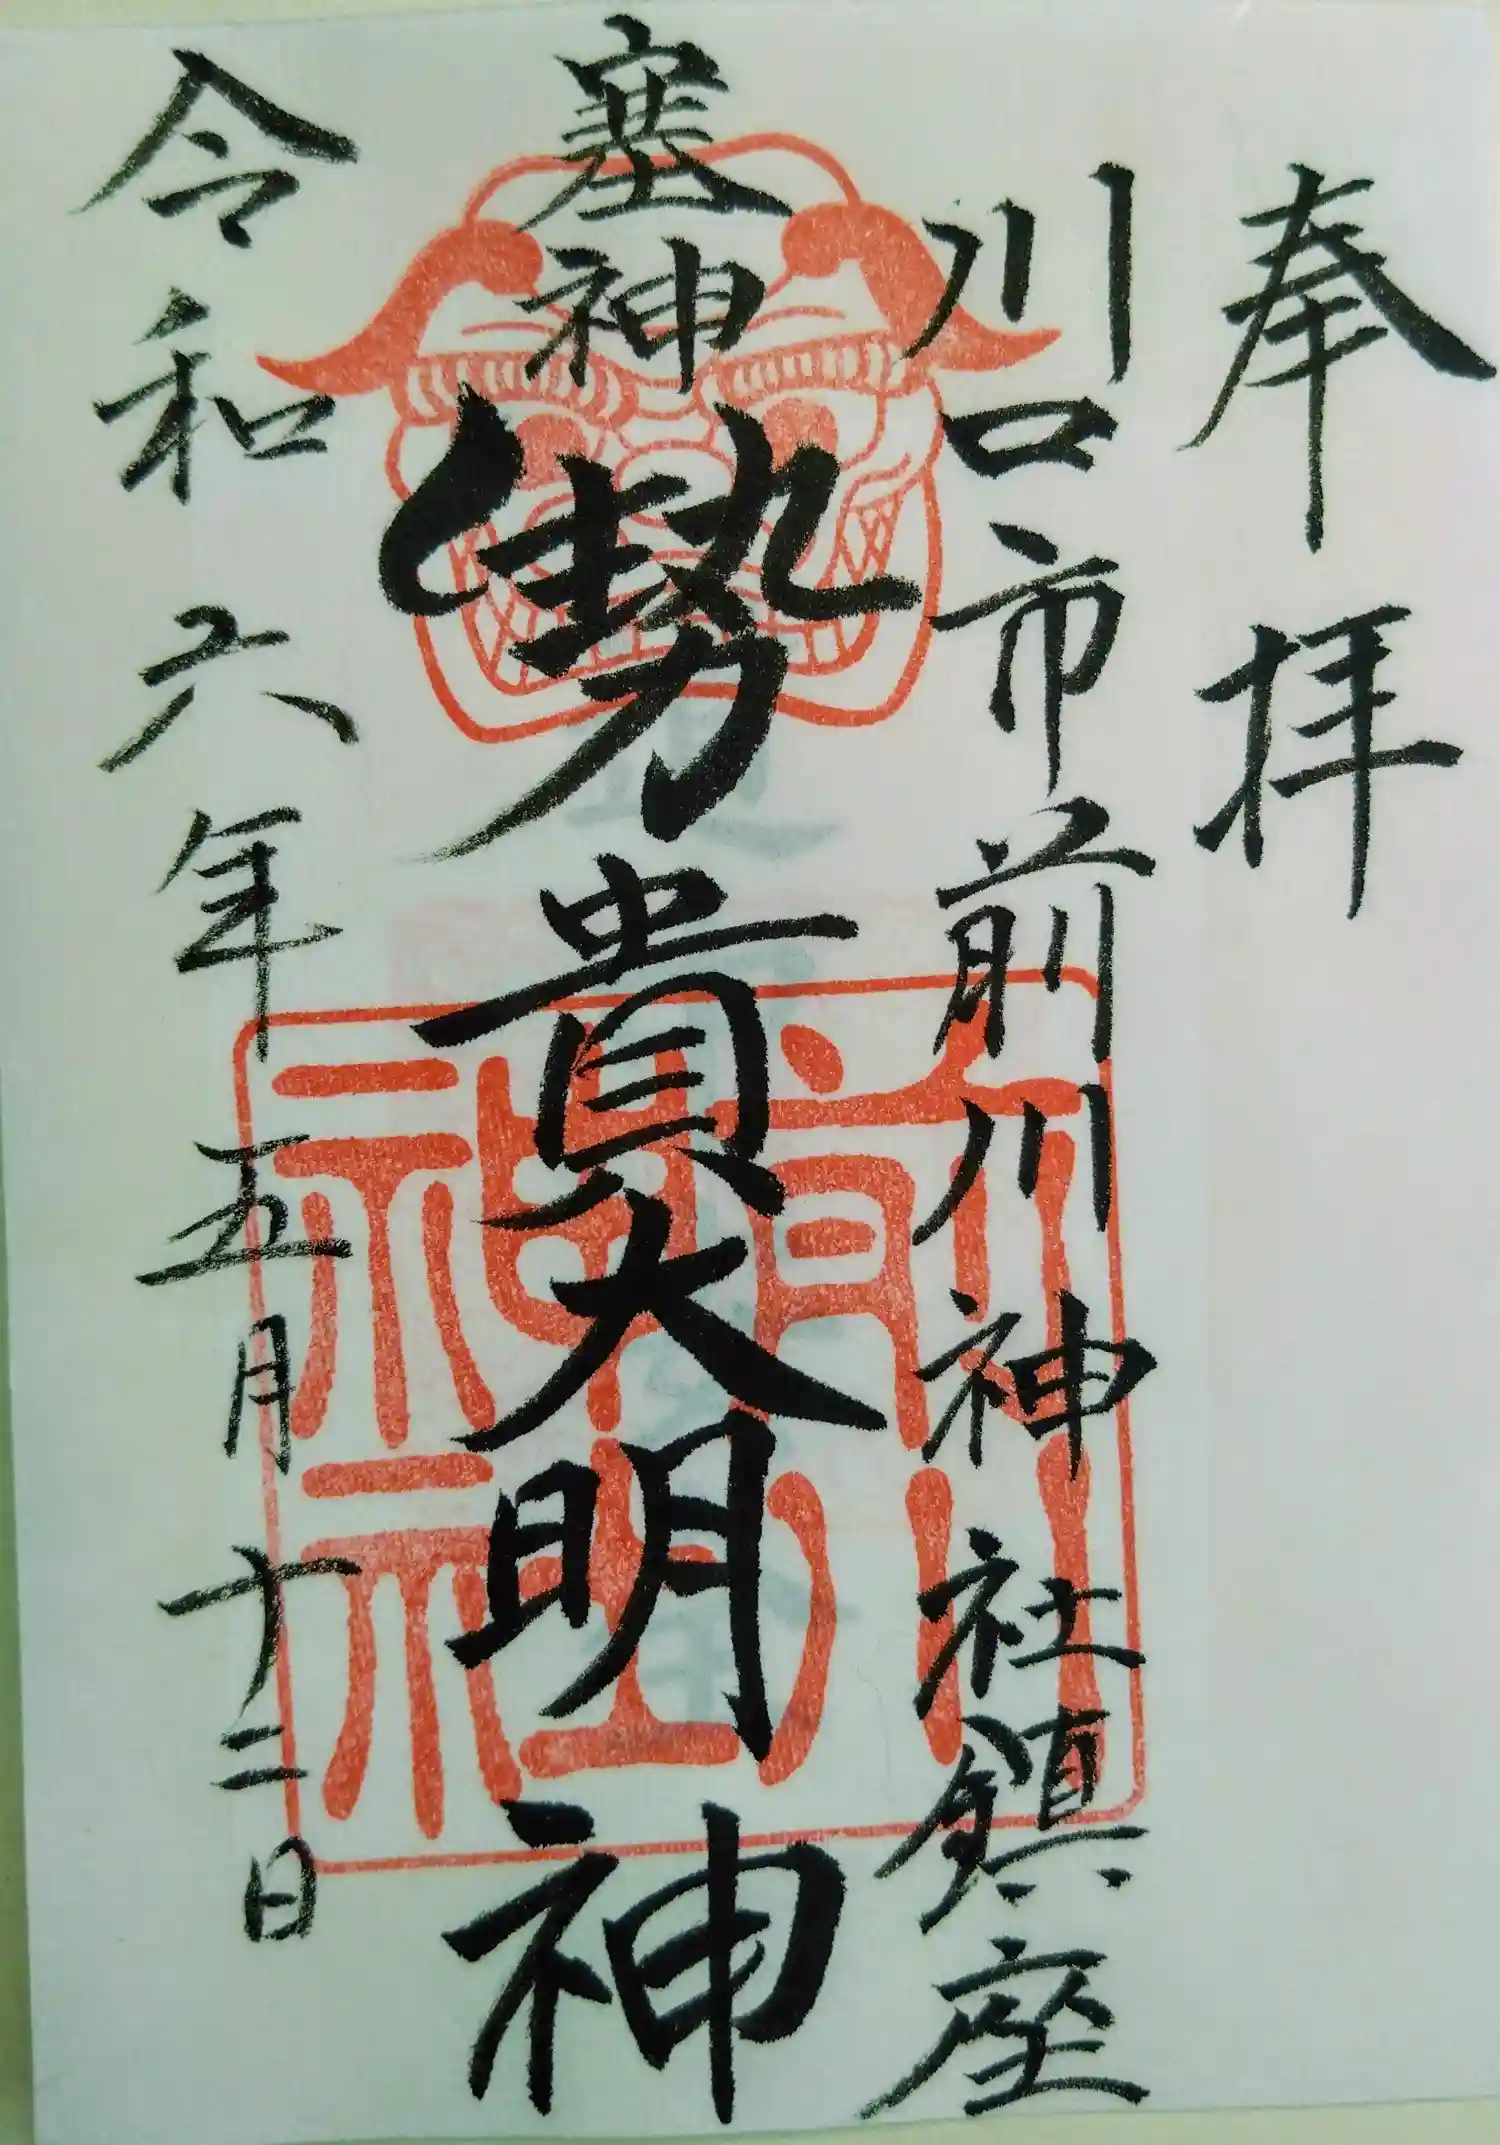 奉拝
川口市前川神社鎮座
塞神
勢貴大明神
令和六年五月十二日
前川神社